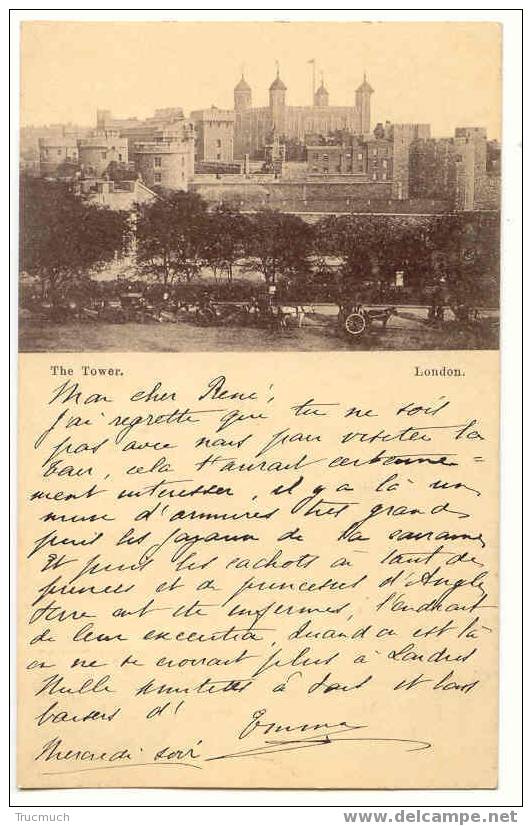 The Tower. London.
Mon cher René,
J'ai regretté que tu ne sois
pas avec nous pour visiter la
tour, cela t'aurait certaine=
ment interesser, il y a là un
muse d'armures tres grand
puis les joyaux de la couronne
Et puis les cachots où tant de
princes et de princesses d'Angle
terre ont été enfermes, l'endroit
de leur execution, Quand on est là
on ne se croirait plus à Londres
Mille amities à tous et bons
baisers d'
Emma
Mercredi soir
Trucmuch
www.delcampe.net